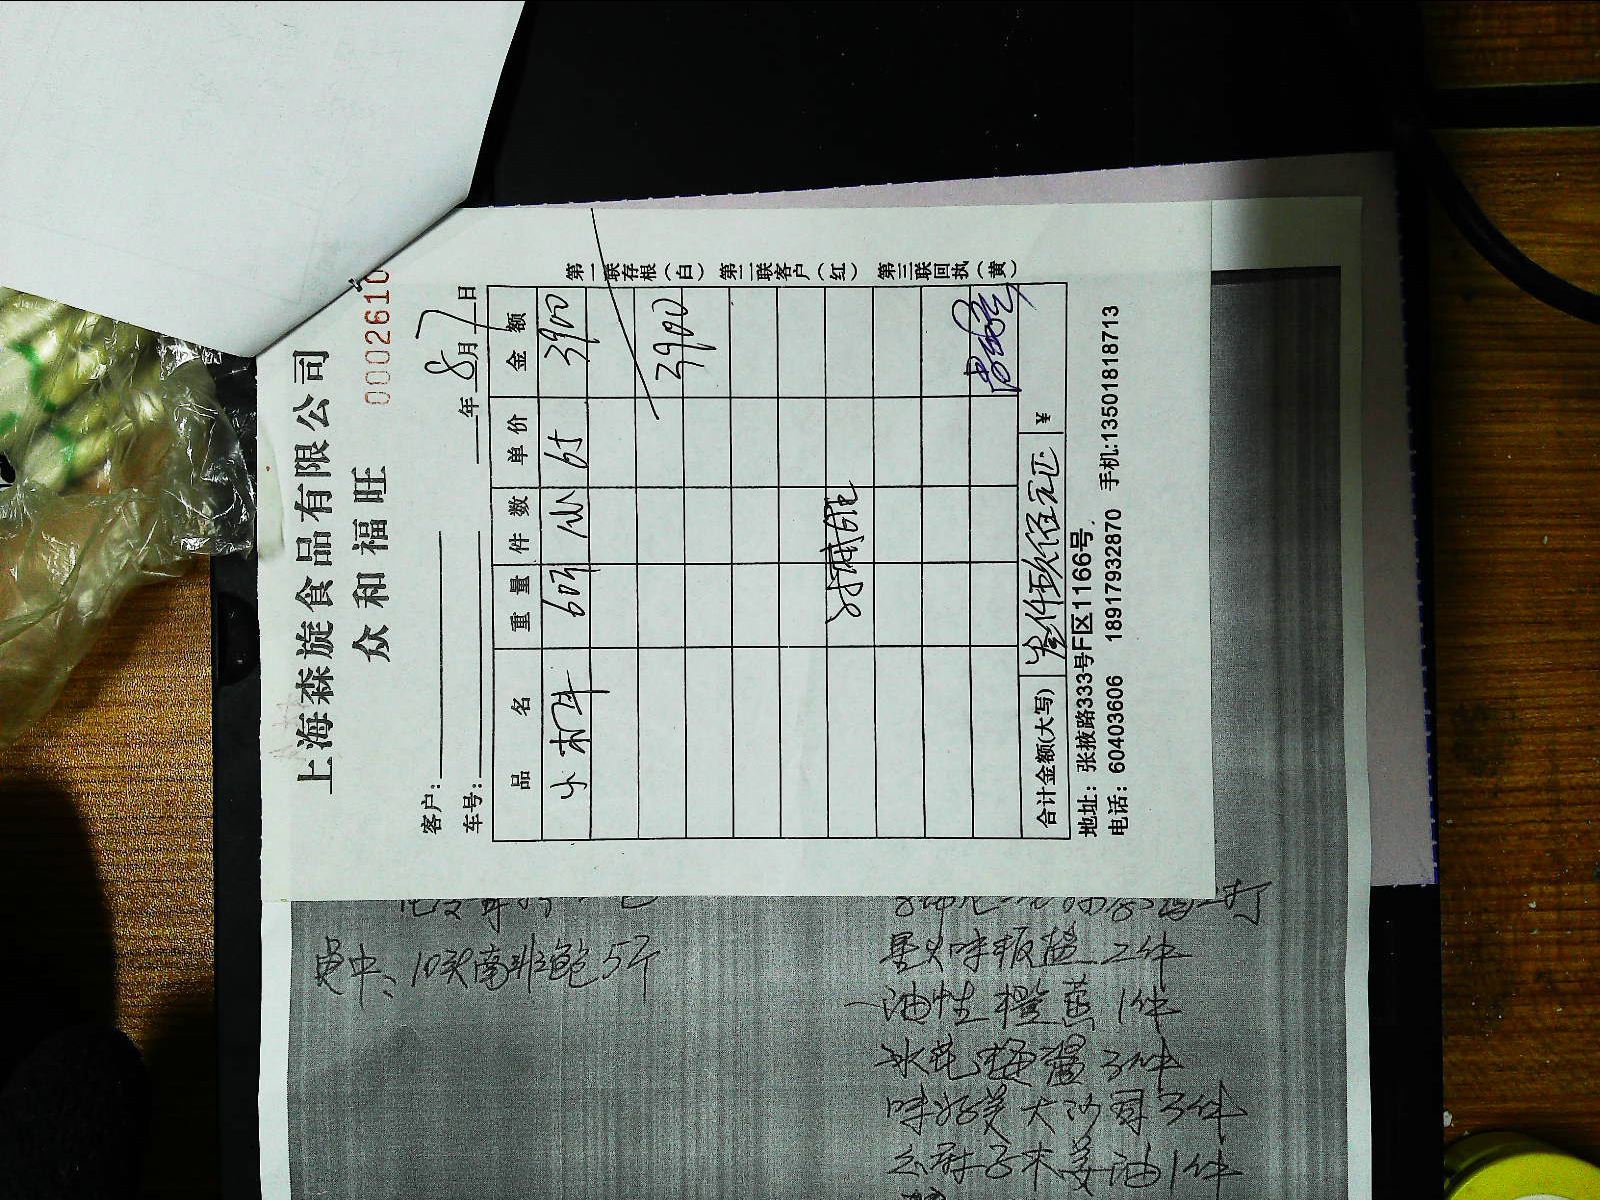 上海森旋食品有限公司
众和福旺
0002610
客户:
年 8 月 7 日
车号:
品 名 重 量 件 数 单 价 金 额
60斤 65 3900
3900
合计金额(大写) 叁仟玖佰元正 ¥
地址: 张掖路333号F区1166号
电话: 60403606 18917932870 手机:13501818713
第一联存根(白) 第二联客户(红) 第三联回执(黄)
10头南非鲍 5斤
2件
油性 1件
冰花 3件
味好美大 3件
木姜油1件